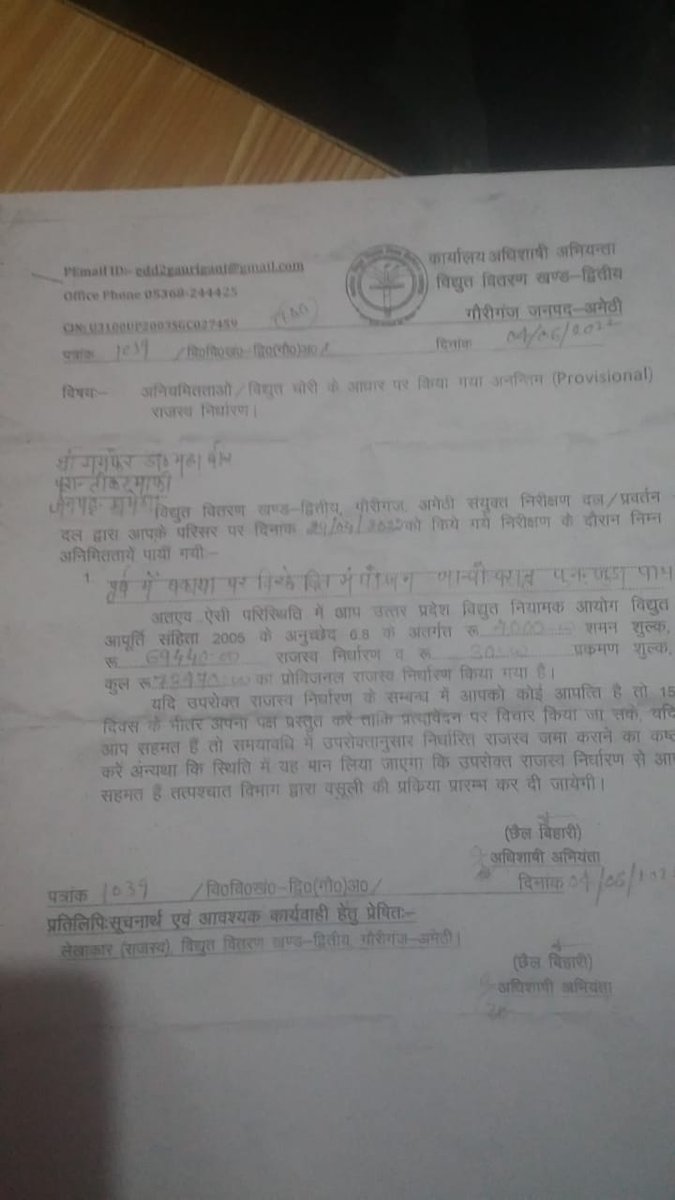 PEmail ID:- edd2gauriganj@gmail.com
Office Phone 05368-244425
CIN: U3100UP2003SGC027459
कार्यालय अधिशाषी अभियन्ता
विद्युत वितरण खण्ड-द्वितीय
गौरीगंज जनपद-अमेठी
पत्रांक 1039 /वि०वि०खं०-द्वि०(गौ०)अ०/
दिनांक 04/06/2022
विषयः- अनियमितताओ/विद्युत चोरी के आधार पर किया गया अनन्तिम (Provisional)
राजस्व निर्धारण।
श्री
विद्युत वितरण खण्ड-द्वितीय, गौरीगंज, अमेठी संयुक्त निरीक्षण दल/प्रवर्तन
दल द्वारा आपके परिसर पर दिनांक को किये गये निरीक्षण के दौरान निम्न
अनिमिततायें पायी गयी:-
1. पूर्व में बकाया पर
अतएव ऐसी परिस्थिति में आप उत्तर प्रदेश विद्युत नियामक आयोग विद्युत
आपूर्ति संहिता 2005 के अनुच्छेद 6.8 के अंतर्गत रू शमन शुल्क,
रू 69440.00 राजस्व निर्धारण व रू प्रकमण शुल्क,
कुल रू का प्रोविजनल राजस्व निर्धारण किया गया है।
यदि उपरोक्त राजस्व निर्धारण के सम्बन्ध में आपको कोई आपत्ति है तो 15
दिवस के भीतर अपना पक्ष प्रस्तुत करें ताकि प्रत्यावेदन पर विचार किया जा सके, यदि
आप सहमत है तो समयावधि में उपरोक्तानुसार निर्धारित राजस्व जमा कराने का कष्ट
करें अन्यथा कि स्थिति में यह मान लिया जाएगा कि उपरोक्त राजस्व निर्धारण से आप
सहमत है तत्पश्चात विभाग द्वारा वसूली की प्रकिया प्रारम्भ कर दी जायेगी।
(छैल बिहारी)
अधिशाषी अभियंता
पत्रांक 1039 /वि०वि०खं०-द्वि०(गौ०)अ०/
दिनांक 04/06/202
प्रतिलिपिःसूचनार्थ एवं आवश्यक कार्यवाही हेतु प्रेषितः-
लेखाकार (राजस्व), विद्युत वितरण खण्ड-द्वितीय, गौरीगंज-अमेठी।
(छैल बिहारी)
अधिशाषी अभियंता